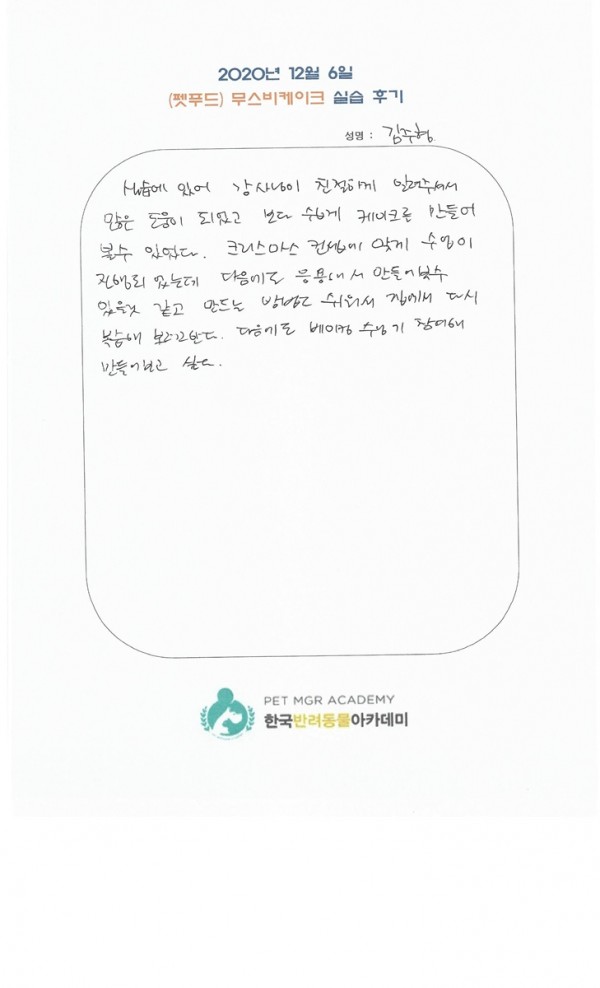 2020년 12월 6일
(펫푸드) 무스비케이크 실습 후기
성명 : 김주형
실습에 있어 강사님이 친절하게 알려주셔서
많은 도움이 되었고 보다 쉽게 케이크를 만들어
볼수 있었다. 크리스마스 컨셉에 맞게 수업이
진행되었는데 다음에도 응용해서 만들어볼수
있을것 같고 만드는 방법도 쉬워서 집에서 다시
복습해 보려고한다. 다음에도 베이킹 수업에 참여해
만들어보고 싶다.
PET MGR ACADEMY
한국반려동물아카데미